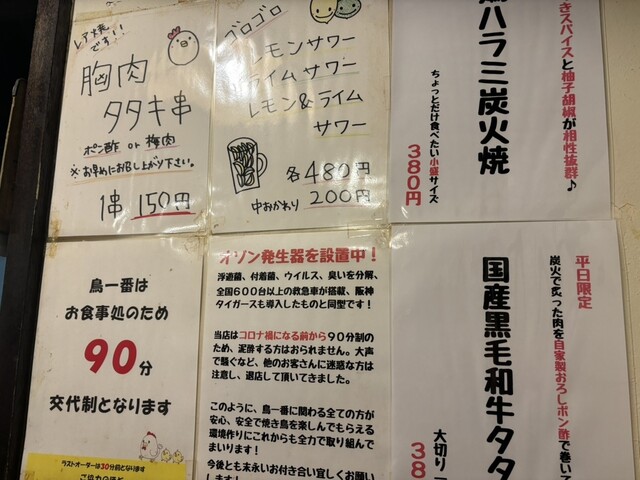 レア焼
です!!
胸肉
タタキ串
ポン酢 or 梅肉
※お早めにお召し上がり下さい。
1串 150円
ゴロゴロ
レモンサワー
ライムサワー
レモン&ライム
サワー
各480円
中おかわり 200円
きスパイスと柚子胡椒が相性抜群♪
ハラミ炭火焼
ちょっとだけ食べたい小盛サイズ
380円
鳥一番は
お食事処のため
90分
交代制となります
ラストオーダーは30分前となります
オゾン発生器を設置中!
浮遊菌、付着菌、ウイルス、臭いを分解、
全国600台以上の救急車が搭載、阪神
タイガースも導入したものと同型です!
当店はコロナ禍になる前から90分制の
ため、泥酔する方はおられません。大声
で騒ぐなど、他のお客さんに迷惑な方は
注意し、退店して頂いてきました。
このように、鳥一番に関わる全ての方が
安心、安全で焼き鳥を楽しんでもらえる
環境作りにこれからも全力で取り組んで
まいります!
今後とも末永いお付き合い宜しくお願い
します!
平日限定
炭火で炙った肉を自家製おろしポン酢で巻いて
国産黒毛和牛タタ
大切り
38